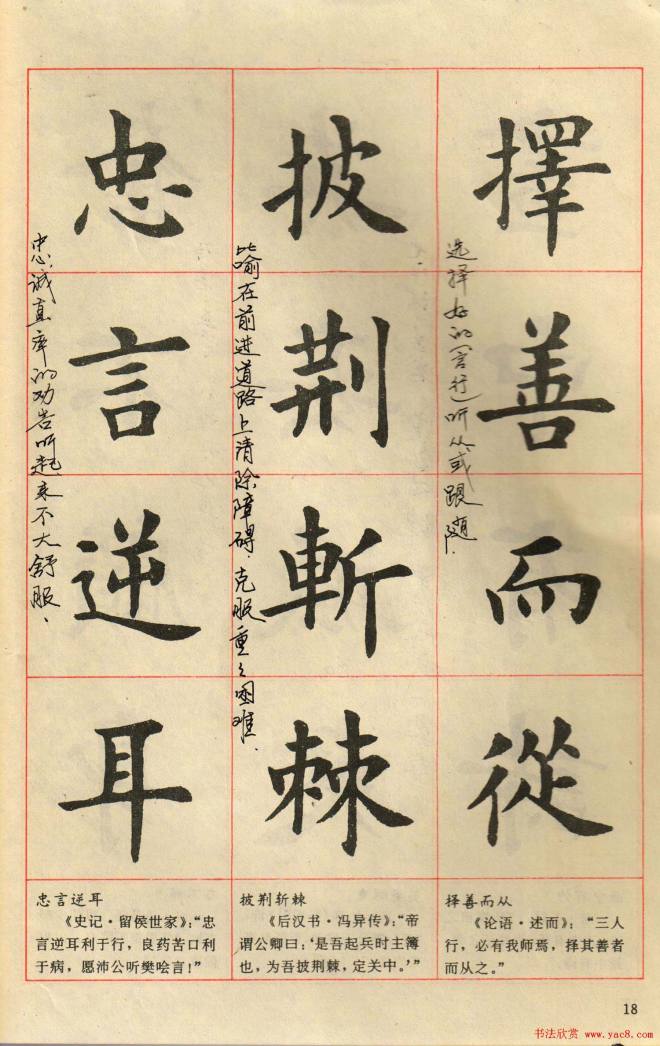 擇善而從
披荆斬棘
忠言逆耳
选择好的(言行)听从或跟随.
比喻在前进道路上清除障碍.克服重々困难.
忠诚直率的劝告听起来不大舒服.
择善而从
《论语·述而》：“三人
行，必有我师焉，择其善者
而从之。”
披荆斩棘
《后汉书·冯异传》：“帝
谓公卿曰：‘是吾起兵时主簿
也，为吾披荆棘，定关中。’”
忠言逆耳
《史记·留侯世家》：“忠
言逆耳利于行，良药苦口利
于病，愿沛公听樊哙言！”
18
书法欣赏 www.yac8.com